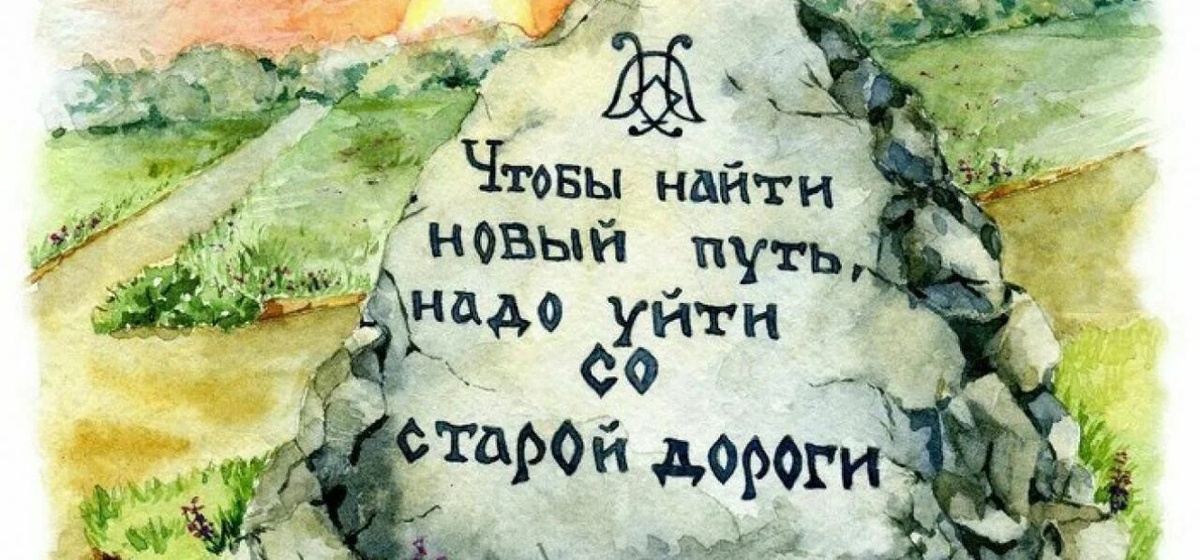 Чтобы найти
новый путь,
надо уйти
со
старой дороги